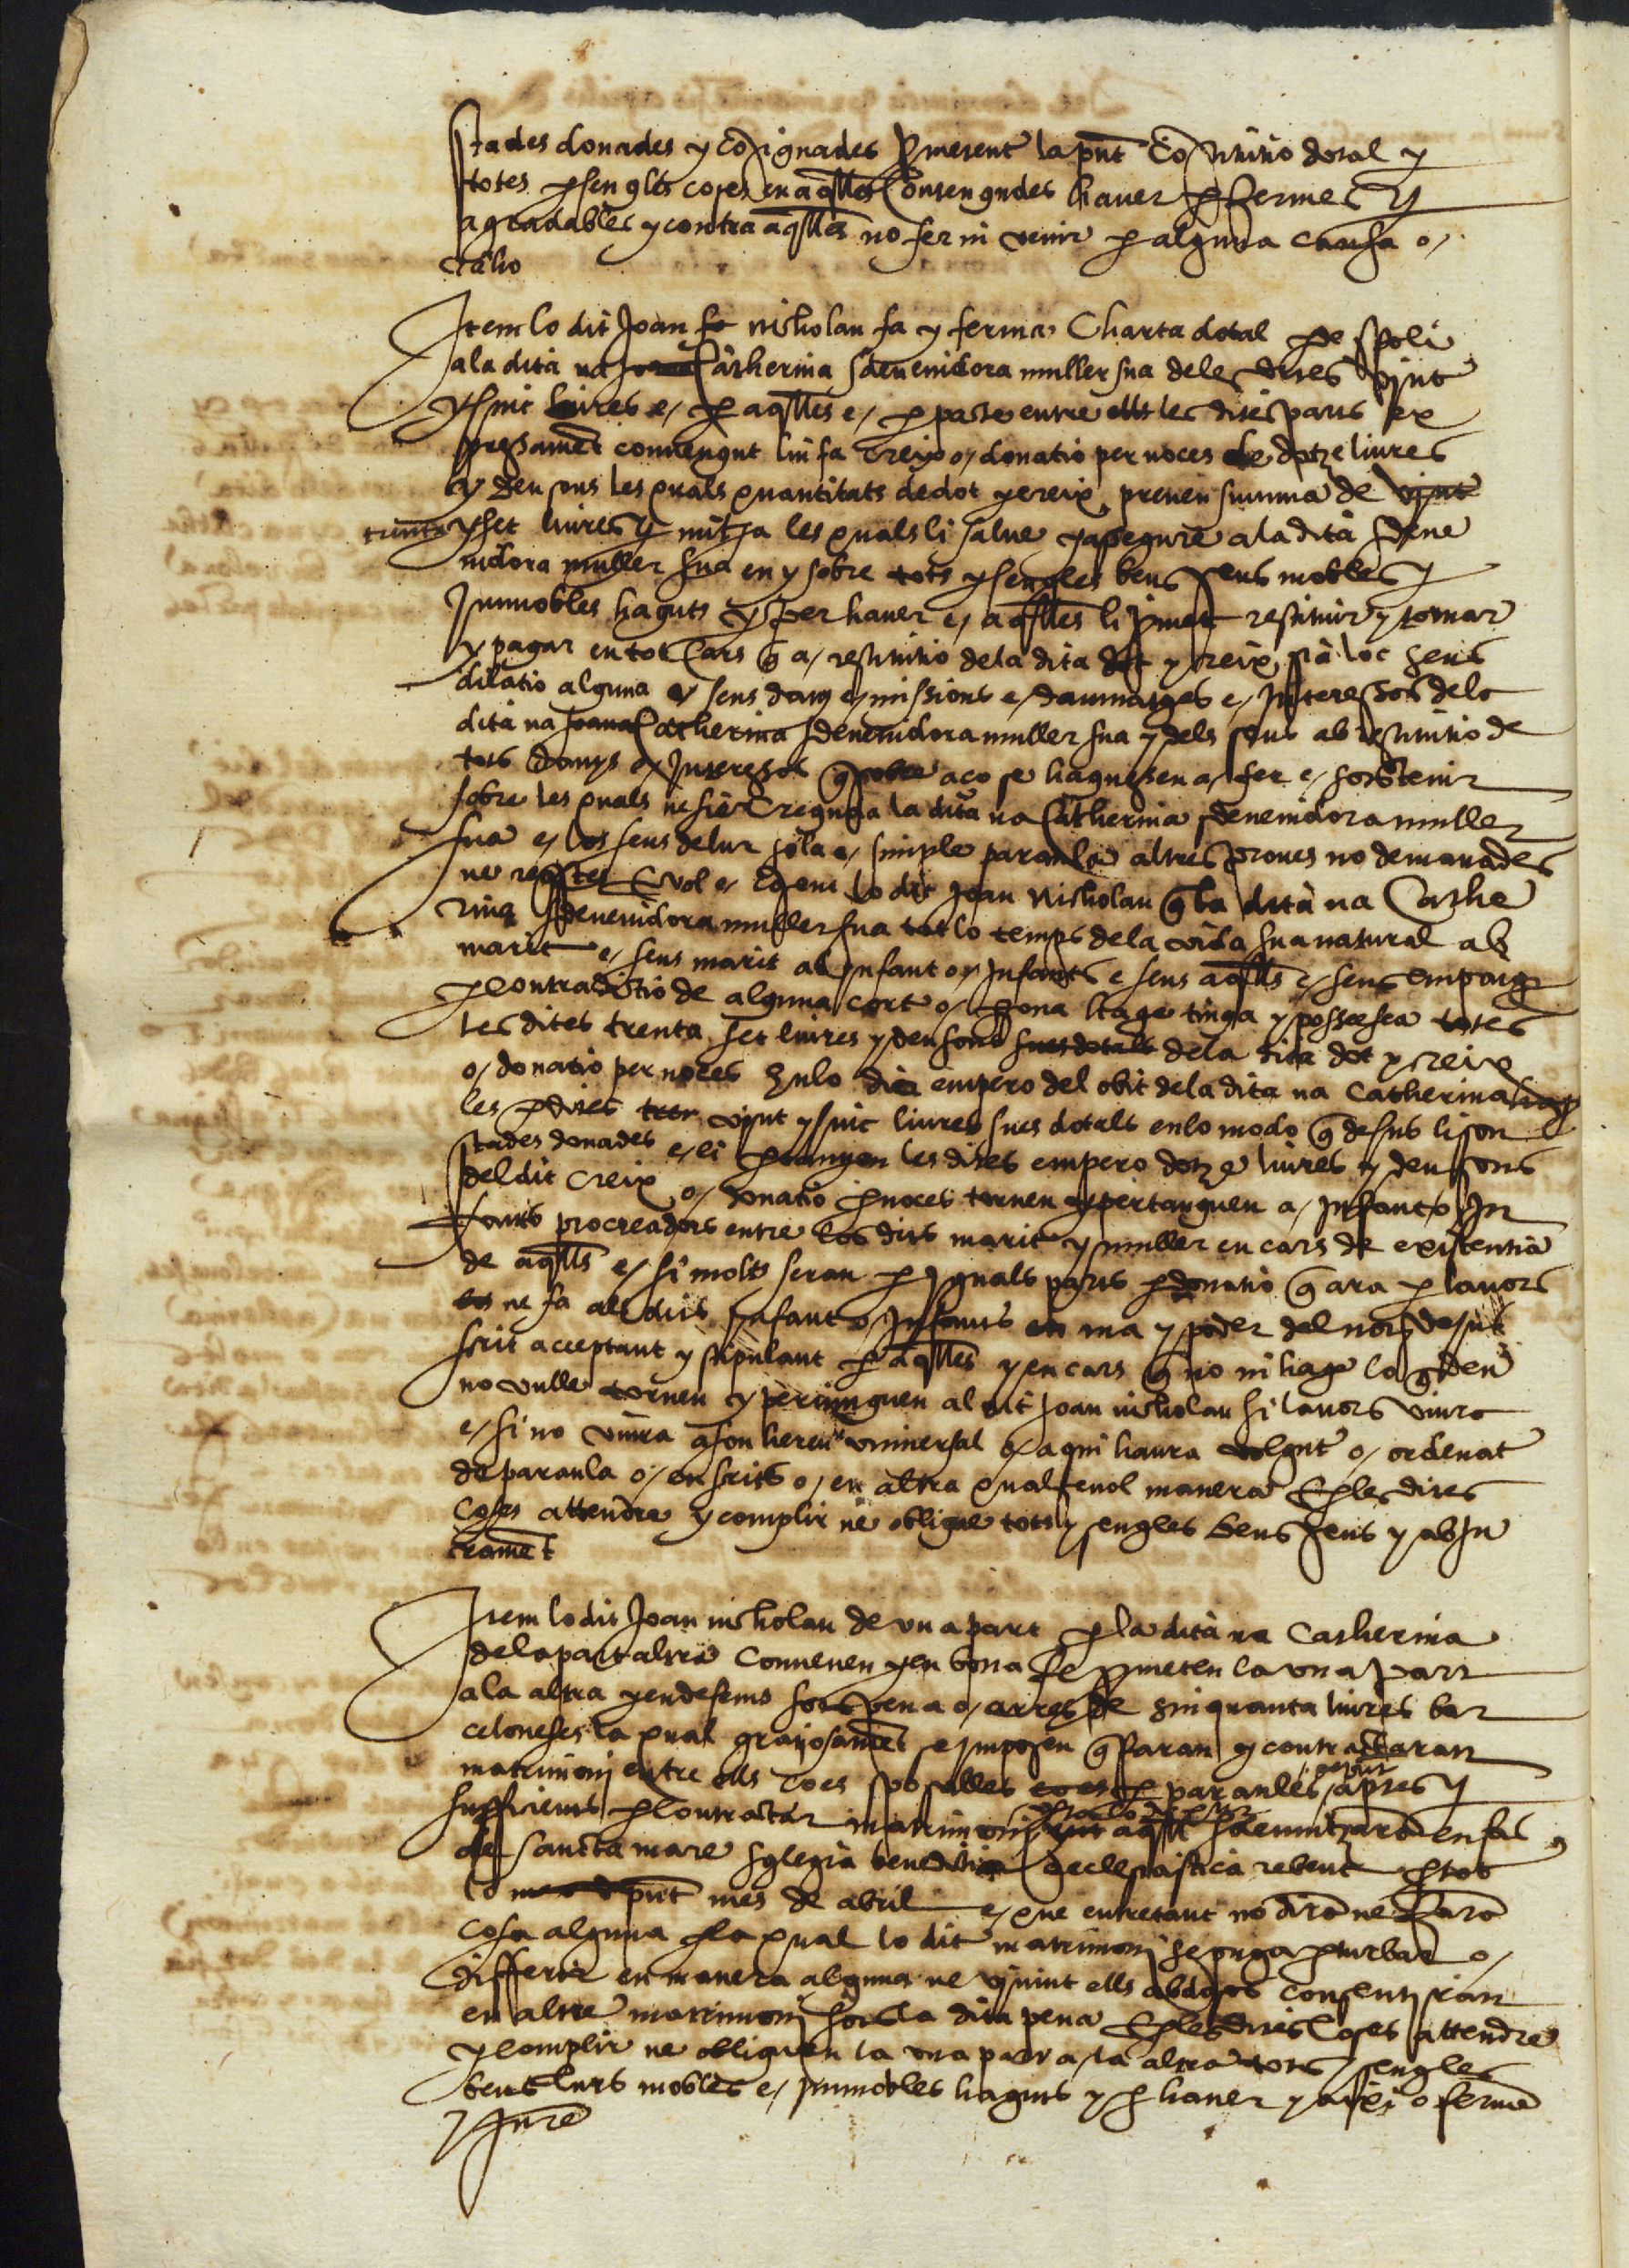 stades donades y cosignades pmetent la pnt costitutio dotal y
totes y sengles coses en aqlles contengudes haver p fermes y
agradables y contra aqlles no fer ni venir p alguna causa o,
raho
Item lo dit Joan fe nicholau fa y ferma Charta dotal e de spoli
a la dita na Joana Catherina sdevenidora muller sua de les dites vint
y sinc liures e, p aqlles e, p pacte entre ells les dites parts ex
pressamet convengut lin fa creix o, donatio per noces de dotze liures
y deu sous les quals quantitats de dot y creix prenen summa de vint
trenta y set liures y mitja les quals li salve y assegure a la dita sdeve
nidora muller sua en y sobre tots y sengles bens seus mobles y
Immobles haguts y per haver e, aqlles li pmet restituir y tornar
y pagar en tot cars q a, restitutio de la dita dot y creix sia loc sens
dilatio alguna e sens dany e, missions e, dammatges e, Interessos dela
dita na Joana Catherina sdevenidora muller sua y dels seus ab restitutio de
tots danys e, Interessos q sobre aço se haguessen a, fer e, sostenir
sobre les quals ne sie creguda la dita na Catherina sdevenidora muller
sua e, los seus de lur sola e, simple paraula altres proves no demanades
ne requestes E vol e, cosent lo dit Joan Nicholau q la dita na Cathe
rina sdevenidora muller sua tot lo temps de la vida sua natural ab
marit e, sens marit ab infant o, Infants e sens aqlls e, sens empaig
y contradictio de alguna cort o, psona haga tinga y possesca totes
les dites trenta set liures y deu sous sues dotals de la dita dot y creix
o, donatio per noces En lo dia empero del obit de la dita na Catherina haje
les pdites tren vint y sinc liures sues dotals en lo modo q desus li son
stades donades e, li ptanyen les dites empero dotze liures y deu sous
del dit creix o, donatio p noces tornen e pertanguen a, Infant o, In
fants procreadors entre los dits marit y muller en cars de existentia
de aqlls e, si molts seran p iguals parts p donatio q ara p lavors
los ne fa als dits Infant o, Infants en ma y poder del not desus
scrit acceptant y stipulant p aqlles y en cars q no ni hage lo q Deu
no vulle tornen y pertanguen al dit Joan nicholau si lavors viura
e, si no viura a son hereu universal o, a qui haura volgut o, ordenat
de paraula o, en scrits o, en altra qualsevol manera E p les dites
coses attendre y complir ne oblige tots y sengles bens seus y ab Ju
ramet
Item lo dit Joan nicholau de una part y la dita na Catherina
de la part altra convenen y en bona fe pmeten la una part
a la altra y endesems sots pena o, arres de sinquanta liures bar
celoneses la qual graciosamet se imposen q faran y contractaran
matrimoni entre ells co es sposalles co es p paraules aptes y
sufficients p contractar matrimoni aqll solemnitzaran en fas
de sancta mare Sglesia benedictio ecclesiastica rebent p tot
lo mes d pnt mes de abril e, que entretant no dirà ne farà
cosa alguna p la qual lo dit matrimoni se puga pturbar o,
differir en manera alguna ne vivint ells abdosos consentiran
en altre matrimoni sots la dita pena E p les dites coses attendre
y complir ne obliguen la una part a, la altra tots y sengles
bens lurs mobles e, immobles haguts y p haver y axi o ferma
y jure